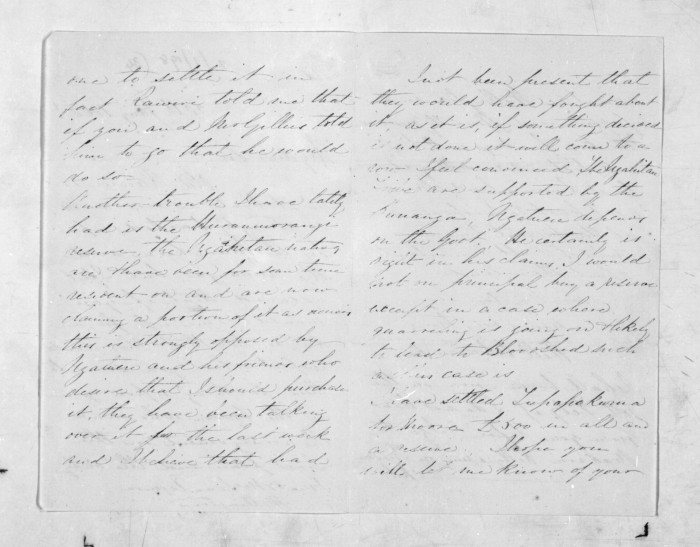 one to settle it in
fact Rawiri told me that
if you and Mr Gillies told
him to go that he would
do so
Another trouble I have lately
had is the
reserve, the natives
are & have been for some time
resident on and are now
claiming a portion of it as owners
this is strongly opposed by
Ngatuere and his friends who
desire that I should purchase
it, they have been talking
over it for the last week
and I believe that had
I not been present that
they would have fought about
it, as it is, if something decided
is not done it will come to a
row I feel convinced. The
are supported by the
Runanga, Ngatuere depends
on the Govt. He certainly is
right in his claim, I would
not on principal buy a reserve
except in a case where
quarreling is going on & likely
to lead to Bloodshed such
as this case is
I have settled
for Moore £ in all and
a reserve. I hope you
will let me know of your